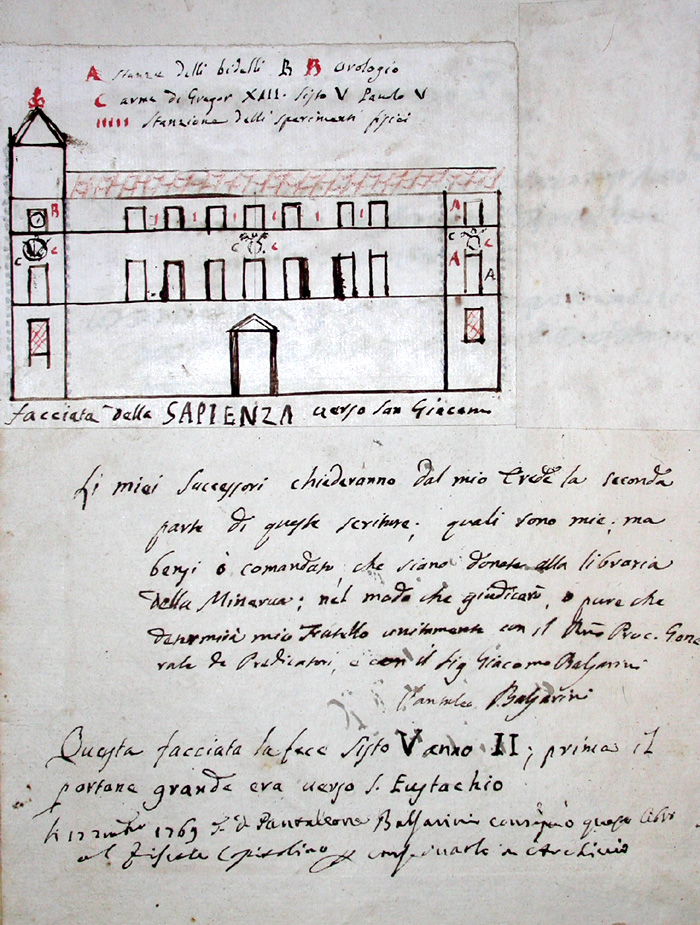 A stanze delli bidelli B B orologio
C arme di Gregor XIII. Sisto V Paulo V
IIIII stanzione delli sperimenti fisici
B
A
C
C
C
C
C
C
A
A
facciata della SAPIENZA verso San Giacomo
Li miei successori chiederanno dal mio Erede la seconda
parte di queste scritture; quali sono mie; ma
bensi ò comandato, che siano donate alla libraria
della Minerva; nel modo che giudicarà, o pure che
determirà mio Fratello unitamente con il Rmo Proc. Gene
rale de Predicatori, e con il Sig Giacomo Balsarini
Pantaleo Balsarini
Questa facciata la fece Sisto V anno II; prima il
portone grande era verso S. Eustachio
1769 Pantaleone Balsarini consegnò questo
al Fiscale Capitolino Archivio